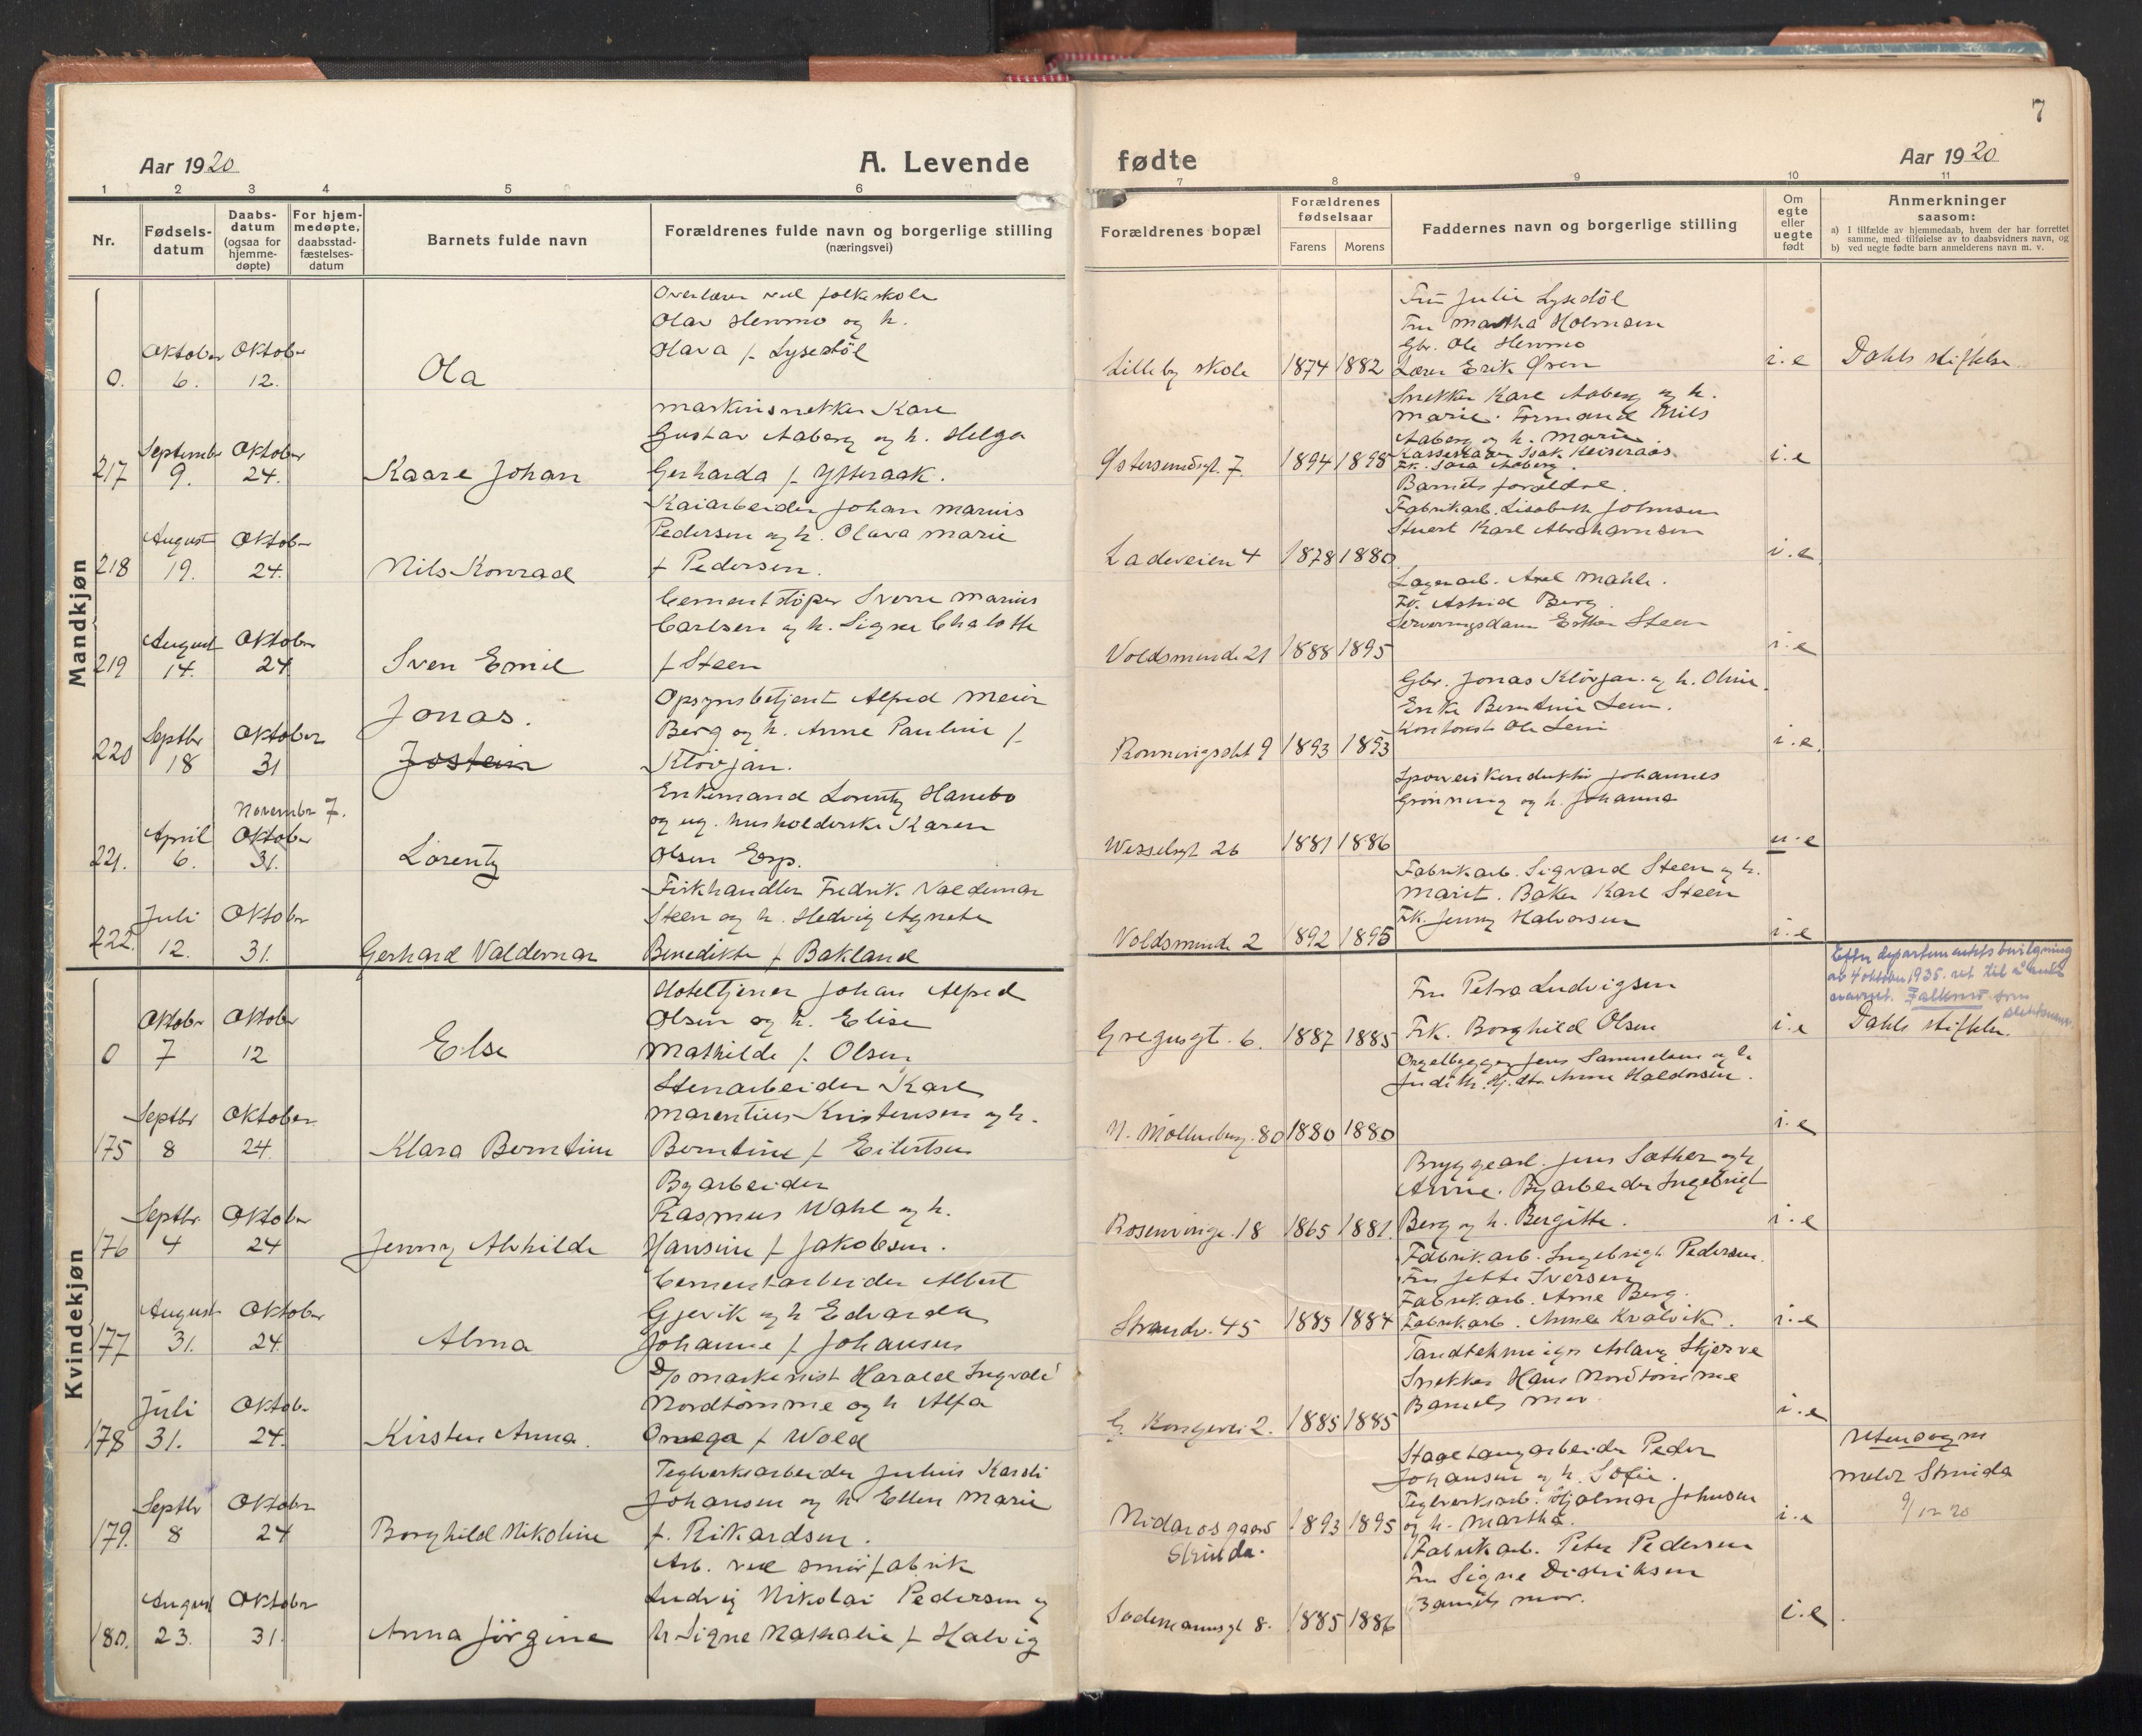 7
Aar 1920
A. Levende
fødte
Aar 1920
1 2 3 4 5 6 7 8 9 10 11
Nr.
Fødsels-
datum
Daabs-
datum
(ogsaa for
hjemme-
døpte)
For hjem-
medøpte,
daabsstad-
fæstelses-
datum
Barnets fulde navn
Forældrenes fulde navn og borgerlige stilling
(næringsvei)
Forældrenes bopæl
Forældrenes
fødselsaar
Farens Morens
Faddernes navn og borgerlige stilling
Om
egte
eller
uegte
født
Anmerkninger
saasom:
a) I tilfælde av hjemmedaab, hvem der har forrettet
samme, med tilføielse av to daabsvidners navn, og
b) ved uegte fødte barn anmelderens navn m. v.
Mandkjøn
0. Oktober 6. Oktober 12.
Ola
Overlærer ved folkeskole
Olav Hemmo og h.
Olava f. Lysestöl
Lilleby skole 1874 1882
Fru Julie Lysestöl
Fru Martha Holmsen
Gbr. Ole Hemmo
Lærer Erik Øren
i. e
Dahls stiftelse
217 September 9. Oktober 24.
Kaare Johan
Maskinsnekker Kare
Gustav Aaberg og h. Helga
Gerharda f. Ytteraak.
Østersundsgt. 7. 1894 1898
Snekker Kare Aaberg og h.
Marie. Formand Nils
Aaberg og h. Marie.
Fr. Sara Aaberg.
i. e
218 August 19. Oktober 24.
Nils Konrad
Kaiarbeider Johan Marius
Pedersen og h. Olava Marie
f. Pedersen.
Ladeveien 4 1878 1880
Barnets forældre.
Fabrikarb. Lisabeth Johnsen
Stuert Karl Abrahamsen
i. e
219 August 14. Oktober 24
Sven Emil
Cementstöper Sverre Marius
Carlsen og h. Signe Chalotte
f. Steen
Voldsminde 21 1888 1895
Lagerarb. Axel Mahle.
Fr. Astrid Berg.
Serveringsdame Esther Steen
i. e
220 Septbr 18 Oktober 31
Jonas.
Jostein
Opsynsbetjent Alfred Meier
Berg og h. Anne Pauline f.
Klövjan.
Ronningsslet 9 1893 1893
Gbr. Jonas Klövjan og h. Oline.
Enke Berntine Lein.
Kontorist Ole Lein
i. e.
221. April 6. November 7.
Oktober 31.
Lorentz
Enkemand Lorentz Hanebo
og ug. husholderske Karen
Olsen Esp.
Wesselsgt 26 1881 1886
Sporveiskonduktör Johannes
Grönning og h. Johanna
u. e
222. Juli 12. Oktober 31.
Gerhard Valdemar
Fiskhandler Fredrik Valdemar
Steen og h. Hedvig Agnete
Benedikte f. Bakland
Voldsminde 2 1892 1895
Fabrikarb. Sigvard Steen og h.
Marit. Baker Karl Steen
Frk. Jenny Halvorsen
i. e
Kvindekjøn
0 Oktober 7 Oktober 12
Else
Hoteltjener Johan Alfred
Olsen og h. Elise
Mathilde f. Olsen
Gregusgt. 6. 1887 1885
Fru Petra Ludvigsen
Frk. Borghild Olsen
i. e
Efter departementets bevilgning
av 4 oktober 1935. ret til å anta
navnet Falkmo som
slektsnavn.
Dahls stiftelse.
175 Septbr 8 Oktober 24.
Klara Berntine
Stenarbeider Karl
Marentius Kristensen og h.
Berntine f. Eilertsen
N. Möllenberg. 80 1880 1880
Orgelbygger Jens Samuelsen og h.
Judith. Hj. dtr. Anne Haldorsen.
i. e
176 Septbr. 4 Oktober 24
Jenny Alvhilde
Byarbeider
Rasmus Wahl og h.
Hansine f. Jakobsen.
Rosenvinge. 18 1865 1881.
Bryggearb. Jens Sæther og h
Anne. Byarbeider Ingebrigt
Berg og h. Bergitte.
i. e
177 August 31. Oktober 24.
Alma
Cementarbeider Albert
Gjevik og h Edvarda
Johanne f. Johansen
Strandv. 45 1885 1884
Fabrikarb. Ingebrigt Pedersen.
Fru Jette Iversen
Fabrikarb. Arne Berg.
Fabrikarb. Anna Kvalvik.
i. e
178 Juli 31. Oktober 24.
Kirsten Anna.
D/o maskinist Harald Ingvald
Nordtömme og h Alfa
Omega f. Wold
G. Kongevei 2. 1885 1885
Tandtekniger Aslaug Skjerve
Snekker Hans Nordtömme
Barnets mor
i. e
179. Septbr 8 Oktober 24
Borghild Nikoline
Teglverksarbeider Julius Kardi
Johansen og h. Ellen Marie
f. Rikardsen.
Nidarosgaard
Strinda. 1893 1895
Staaltaugarbeider Peder
Johansen og h. Sofie.
Teglverksarb. Hjalmar Johnsen
og h. Martha.
i. e
Utensogns
meldt Strinda
9/12 20
180. August 23. Oktober 31.
Anna Jörgine
Arb. ved smörfabrik
Ludvig Nikolai Pedersen og
h Signe Nathalie f. Halvig
Sodemannsgt 8. 1885 1886
Fabrikarb. Peter Pedersen
Fru Signe Didriksen
Barnets mor.
i. e.